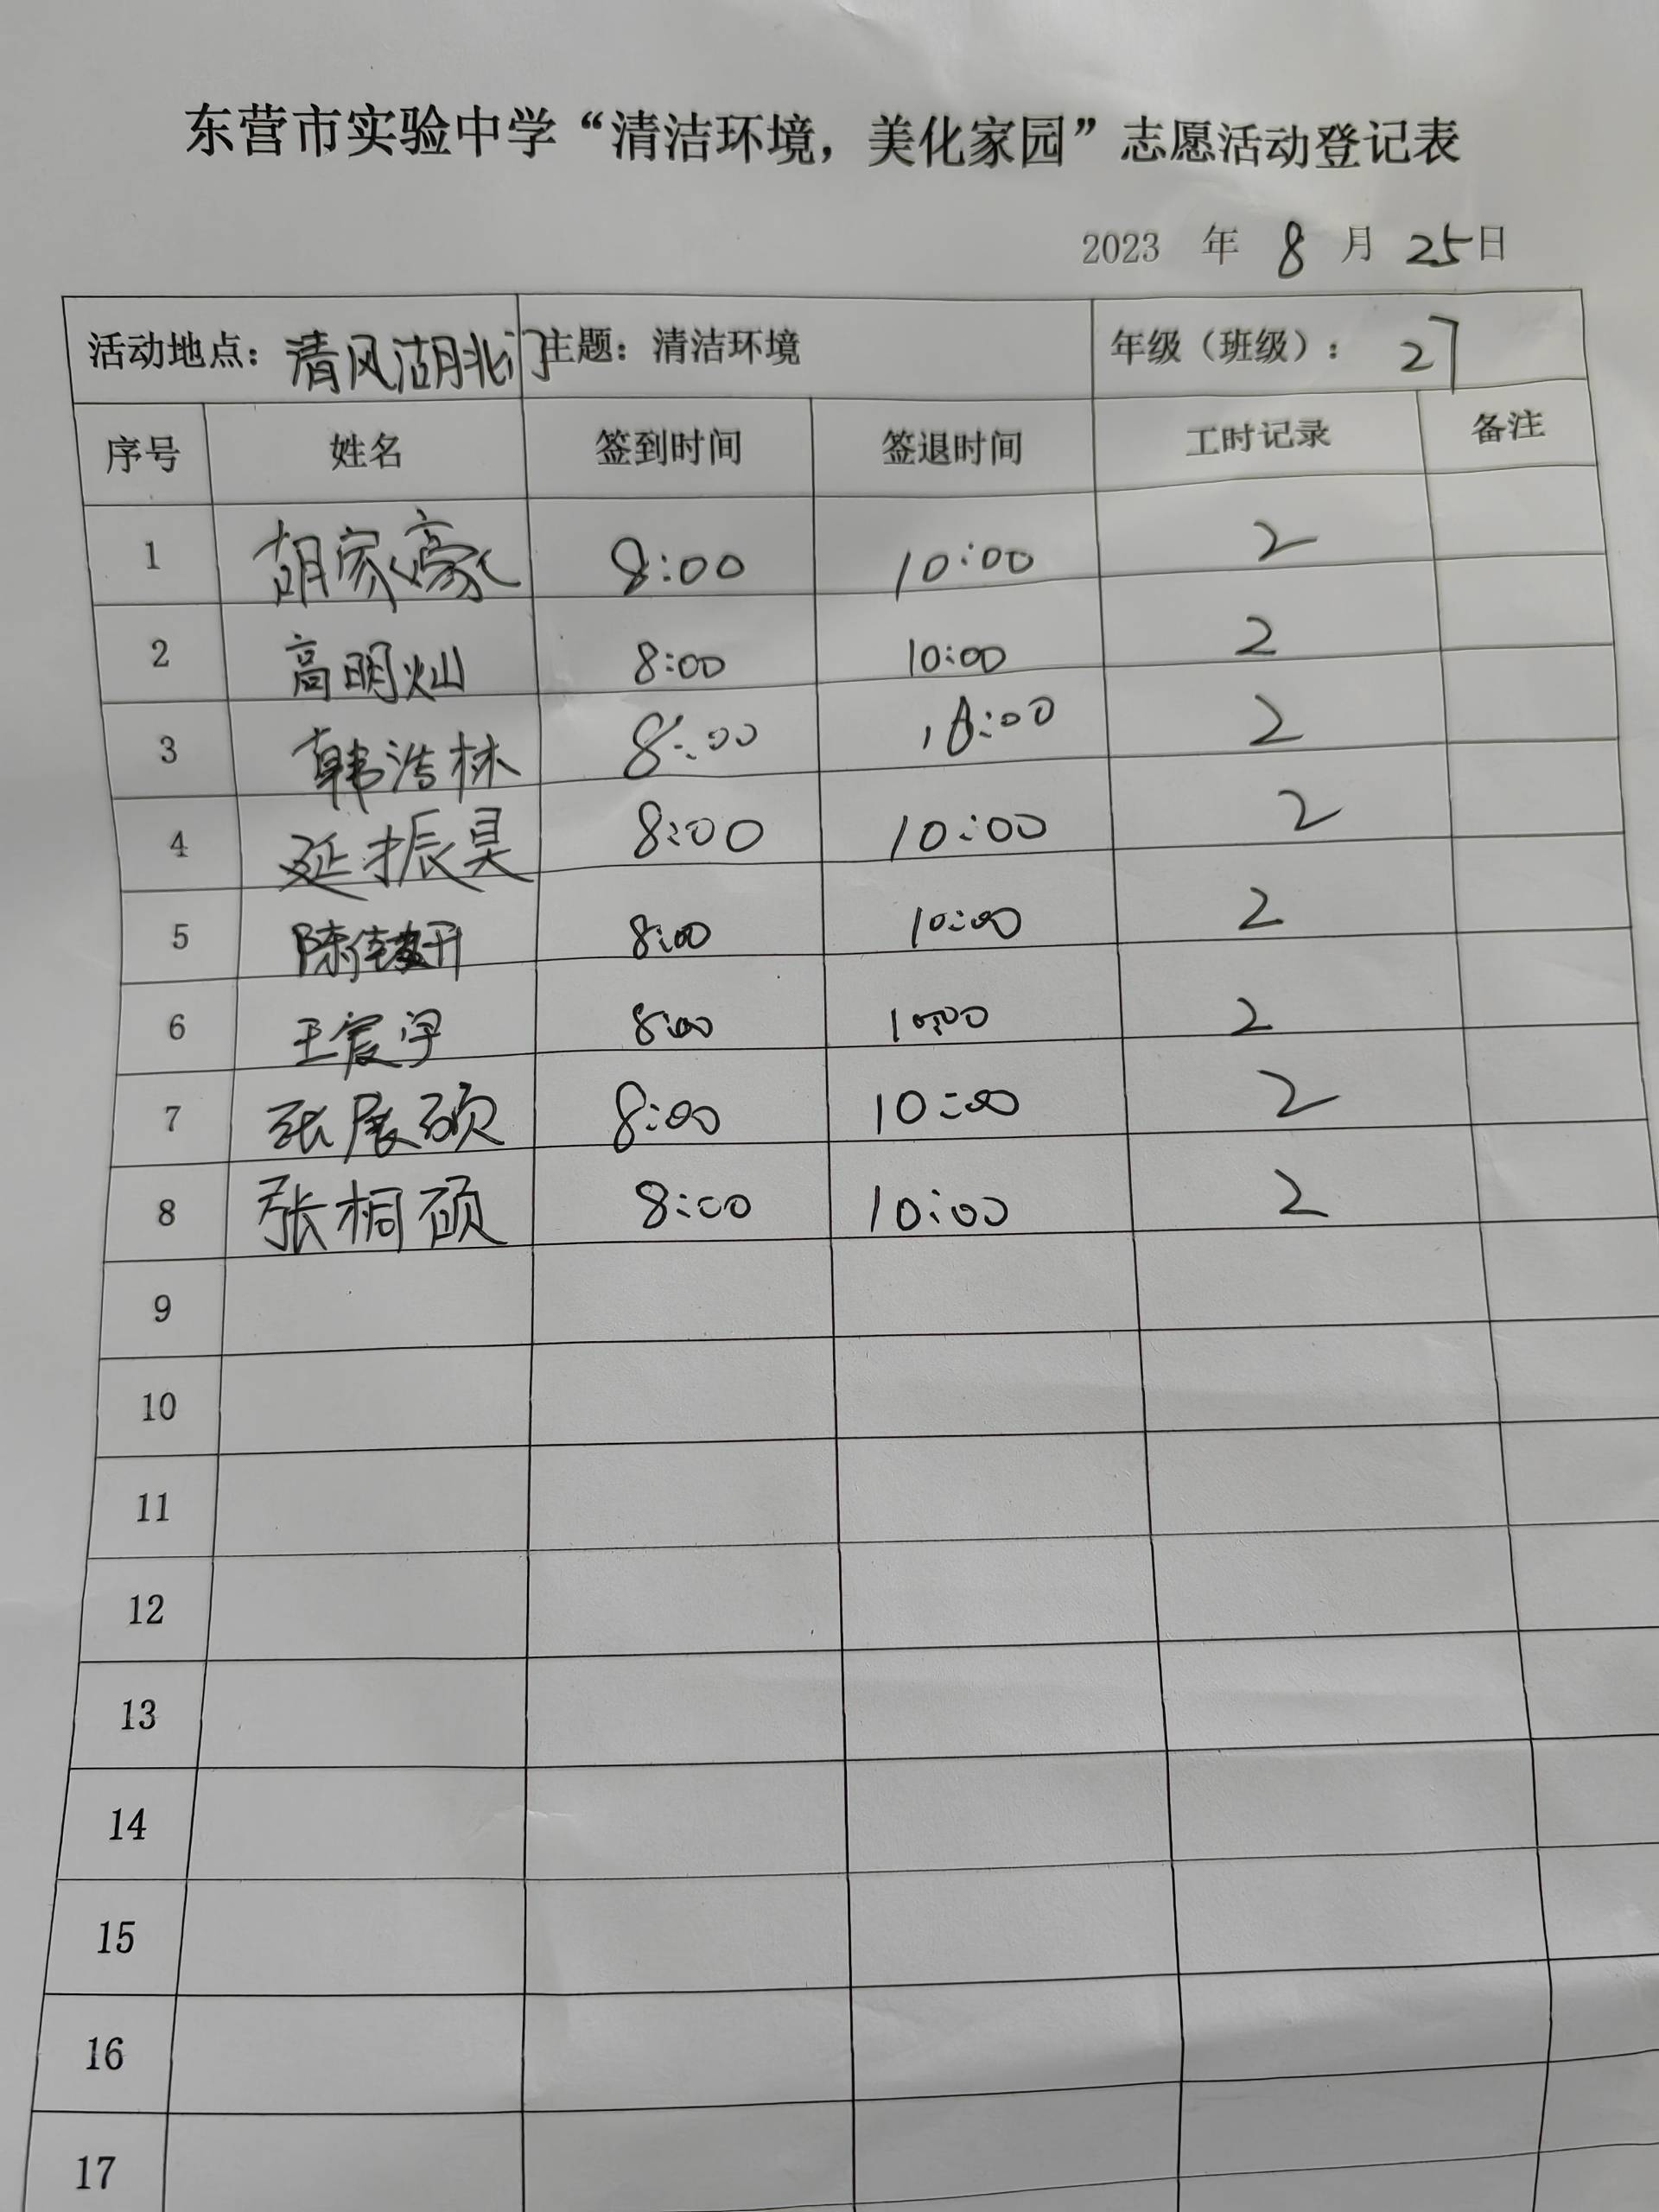 东营市实验中学“清洁环境，美化家园”志愿活动登记表
2023 年 8 月 25日
活动地点：清风湖北门 主题：清洁环境 年级（班级）：27
序号 姓名 签到时间 签退时间 工时记录 备注
1 胡家豪 8:00 10:00 2
2 高明灿 8:00 10:00 2
3 韩浩林 8:00 10:00 2
4 延振昊 8:00 10:00 2
5 陈佳妍 8:00 10:00 2
6 王宸宇 8:00 10:00 2
7 张展硕 8:00 10:00 2
8 张桐硕 8:00 10:00 2
9
10
11
12
13
14
15
16
17